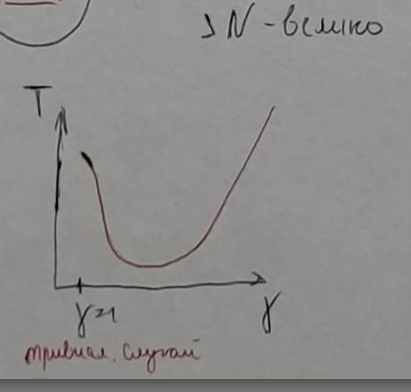 N - велико
T
γ=1
γ
тривиал. случай